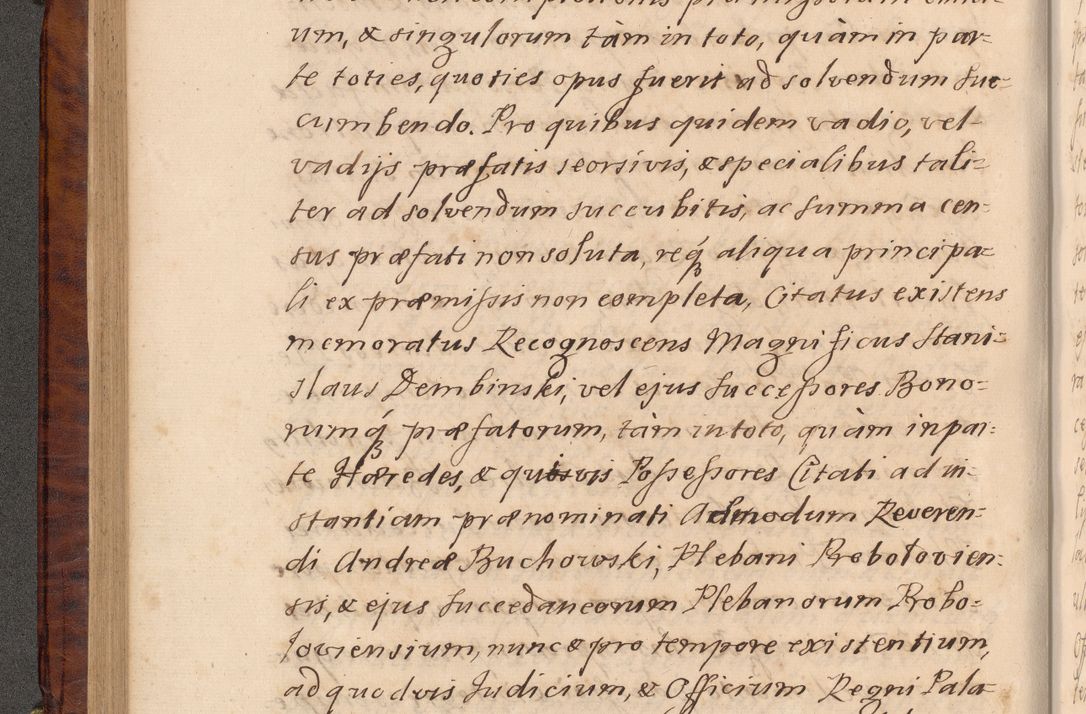 um, & singulorum tàm in toto, quàm in par-
te toties, quoties opus fuerit ad solvendum suc-
cumbendo. Pro quibus quidem vadio, vel
vadijs præfatis seorsivis, & specialibus tali-
ter ad solvendum succubitis, ac summa cen-
sus præfati non soluta, reqꝫ aliqua principa-
li ex præmissis non completa, Citatus existens
memoratus Recognoscens Magnificus Stani-
slaus Dembinski, vel ejus Successores Bono-
rumqꝫ præfatorum, tàm in toto, quàm in par-
te Hæredes, & quisvis Possessores Citati ad in-
stantiam prænominati Admodum Reveren-
di Andreæ Buchowski, Plebani Probołovien-
sis, & ejus Succedaneorum Plebanorum Probo-
loviensium, nunc & pro tempore existentium,
ad quodvis Judicium, & Officium Regni Pala-